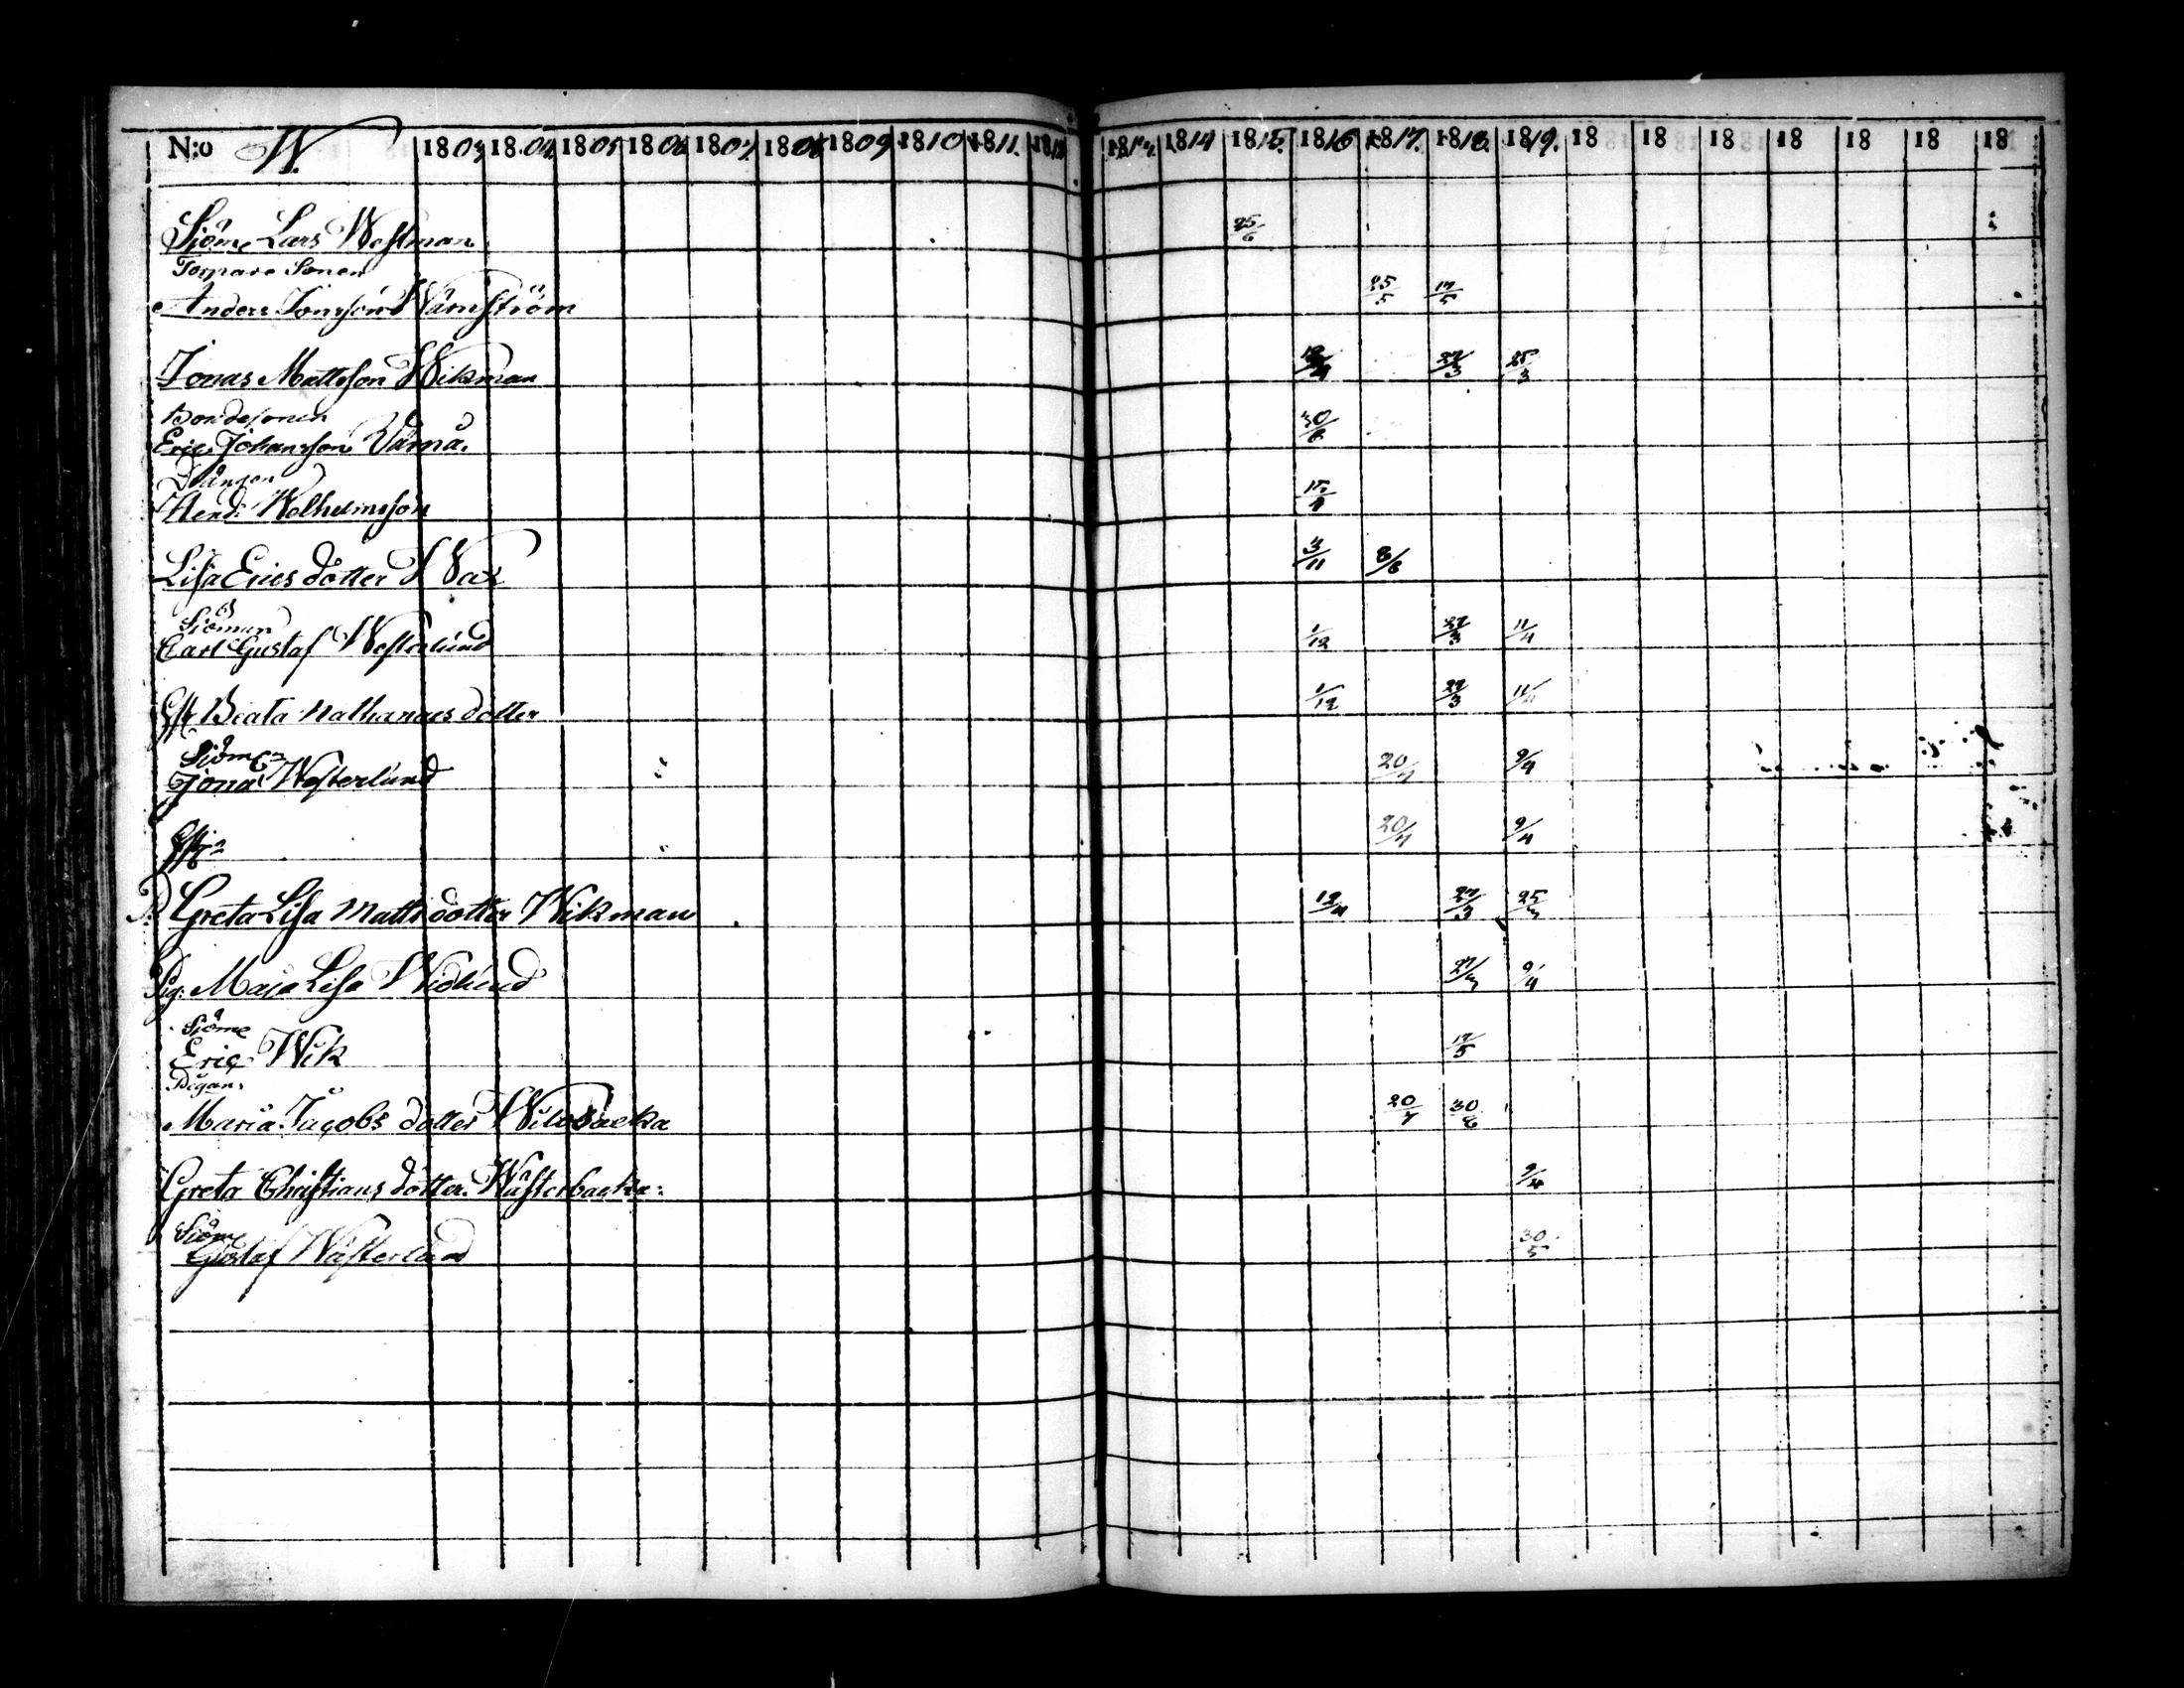 N:o W. 1803 1804 1805 1806 1807. 1808 1809 1810 1811. 1812 1813. 1814 1815. 1816 1817. 1818. 1819. 18 18 18 18 18 18 18
Siöm Lars Westman 25/6
Torpare Sonen
Anders Jonsson Wärnström 25/5 17/5
Jonas Mattsson Wikman 27/3 25/3
Bondesonen
Eric Johansson Värnä. 30/6
Drängen
Hend: Welhelmsson
Lisa Erics dotter 3/11 8/6
Siöman
Carl Gustaf Westerlund 1/12 27/3 11/4
Beata Nathanaels dotter 1/12 27/3 11/4
Siöm
Jonas Westerlund 20/4 9/4
20/4 9/4
P. Greta Lisa Matts dotter Wikman 12/4 27/3 25/3
Pig: Maja Lisa Widlund 27/3 9/4
Siöm
Eric Wik 17/5
Pigan
Maria Jacobs dotter 20/7 30/6
Greta Christians dotter Wästerbacka: 9/4
Siöm
Gustaf Wästerlund 30/5